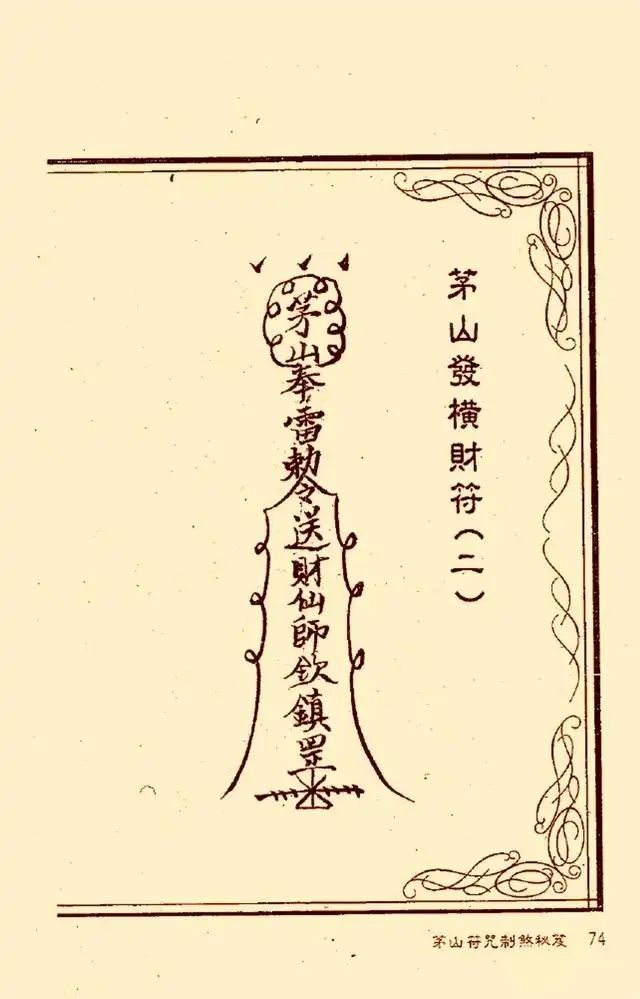 茅山發橫財符(二)
茅山奉雷勅令送財仙師欽鎮罡
茅山符咒制煞秘笈 74